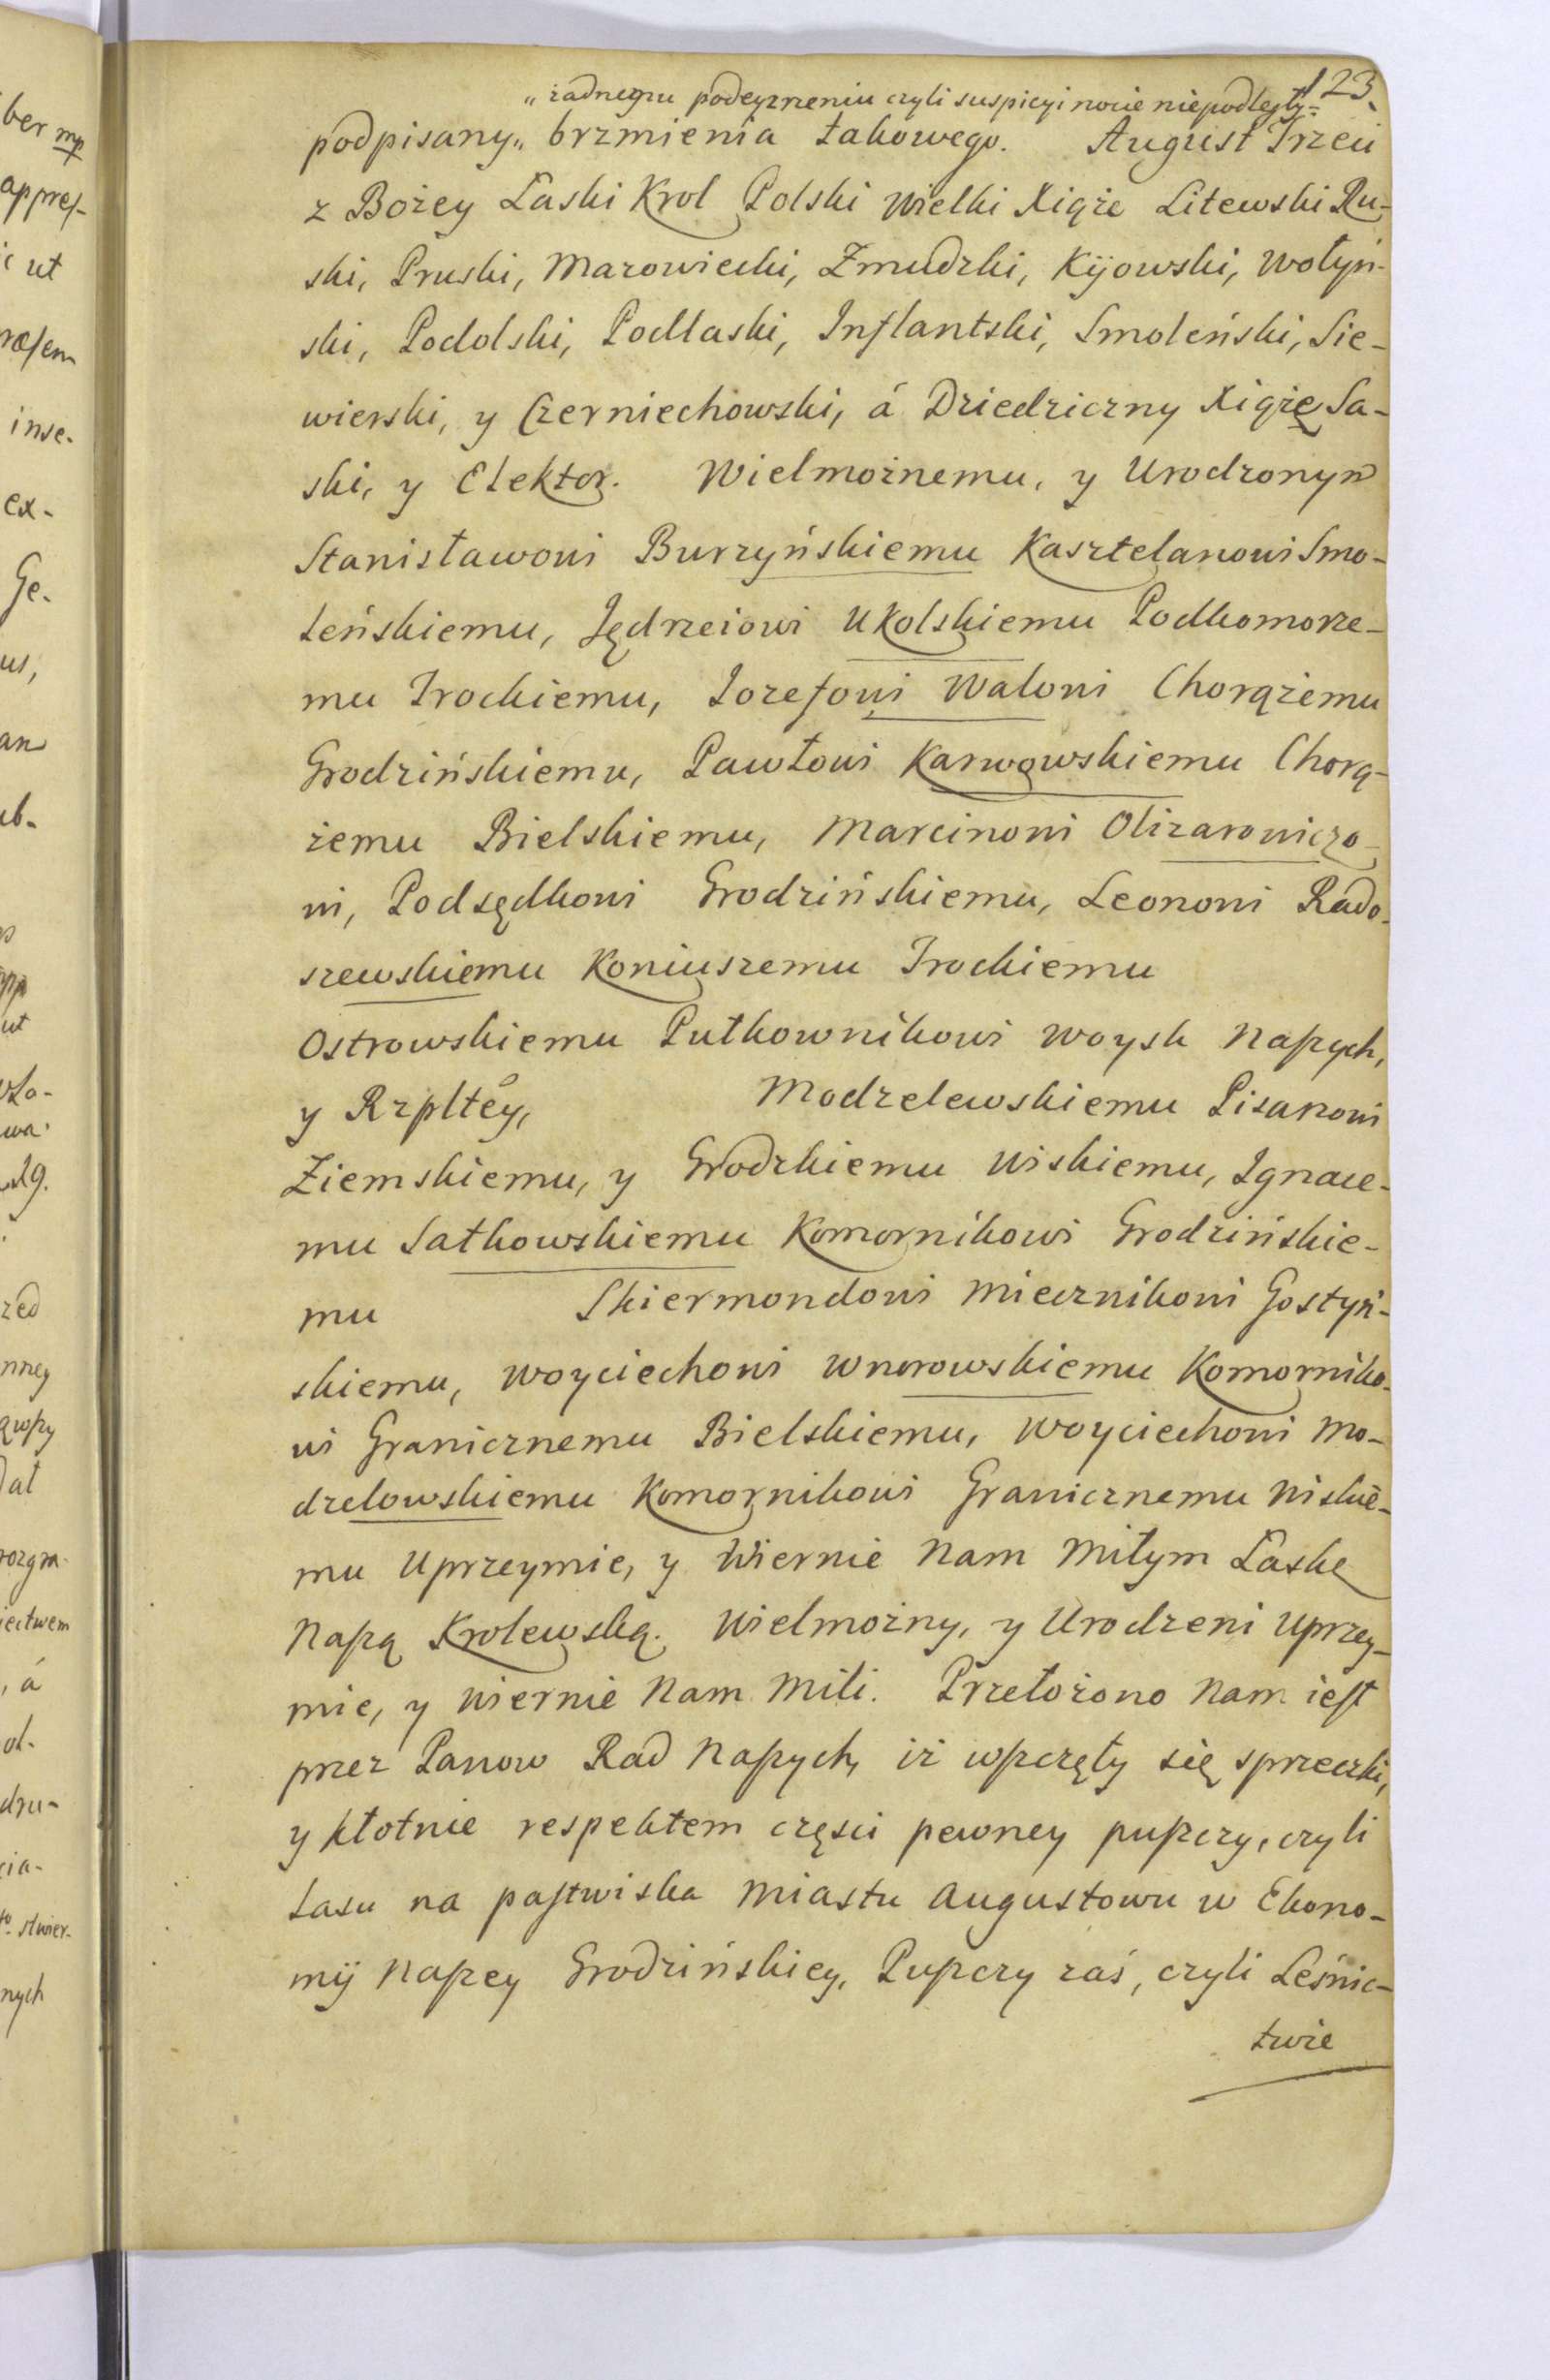 123.
„żadnemu podeyzreniu czyli suspicyi nocie niepodległy=
podpisany„ brzmienia takowego. August Trzeci
z Bożey Łaski Krol Polski Wielki Xiąże Litewski Ru-
ski, Pruski, Mazowiecki, Zmudzki, Kijowski, Wołyń-
ski, Podolski, Podlaski, Inflantski, Smoleński, Sie-
wierski, y Czerniechowski, á Dziedziczny Xiąże Sa-
ski, y Elektor. Wielmożnemu, y Urodzonym
Stanisławowi Burzyńskiemu Kasztelanowi Smo-
leńskiemu, Jędrzeiowi Ukolskiemu Podkomorze-
mu Trockiemu, Jozefowi Walowi Chorążemu
Grodzińskiemu, Pawłowi Karwowskiemu Chorą-
żemu Bielskiemu, Marcinowi Olizarowiczo-
wi, Podsędkowi Grodzińskiemu, Leonowi Rado-
szewskiemu Koniuszemu Trockiemu
Ostrowskiemu Pułkownikowi Woysk Naszych,
y Rzpltey, Modzelewskiemu Pisarowi
Ziemskiemu, y Grodzkiemu Wiskiemu, Ignace-
mu Sałkowskiemu Komornikowi Grodzińskie-
mu Skiermondowi Miecznikowi Gostyń-
skiemu, Woyciechowi Wnorowskiemu Komorniko-
wi Granicznemu Bielskiemu, Woyciechowi Mo-
dzelowskiemu Komornikowi Granicznemu Wiskie-
mu Uprzeymie, y Wiernie Nam Miłym Łaskę
Naszą Krolewską. Wielmożny, y Urodzeni Uprzey-
mie, y Wiernie Nam Mili. Przełożono Nam iest
przez Panow Rad Naszych, iż wszczęły się sprzeczki,
y kłotnie respektem części pewney puszczy, czyli
Lasu na pastwiska Miastu Augustowu w Ekono-
mij Naszey Grodzińskiey, Puszczy zaś, czyli Leśnic-
twie